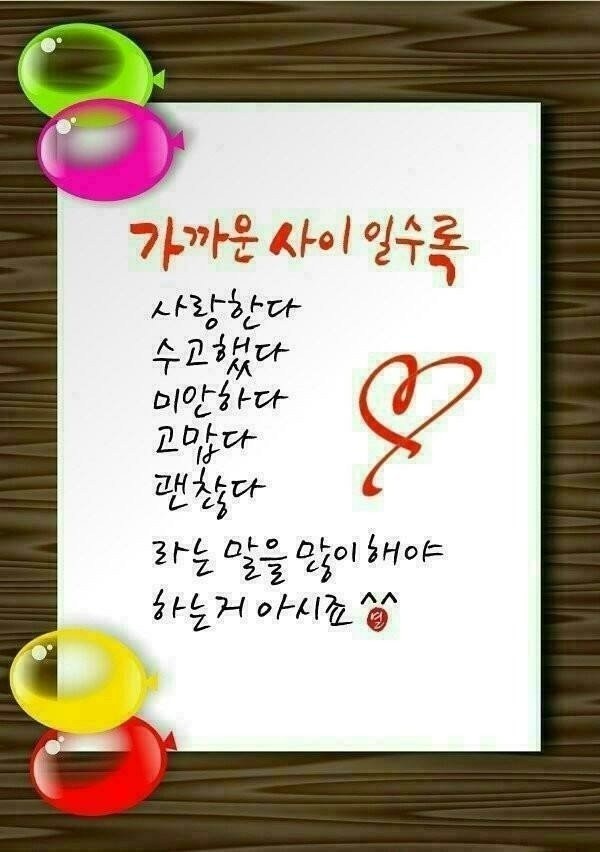 가까운 사이 일수록
사랑한다
수고했다
미안하다
고맙다
괜찮다
라는 말을 많이 해야
하는거 아시죠 ^^